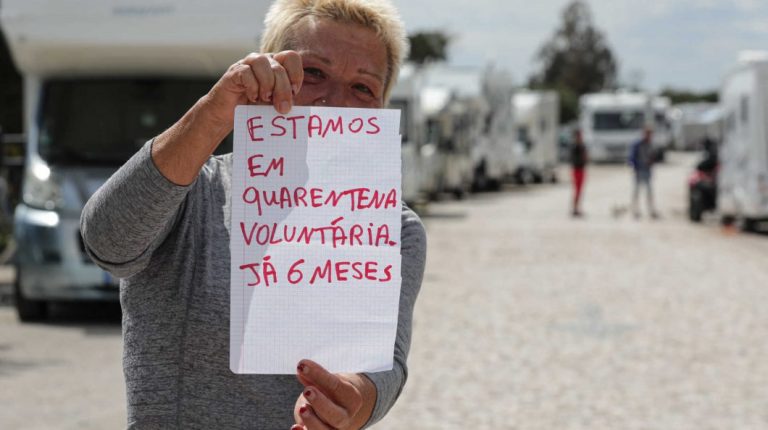 ESTAMOS
EM
QUARENTENA
VOLUNTÁRIA.
JÁ 6 MESES